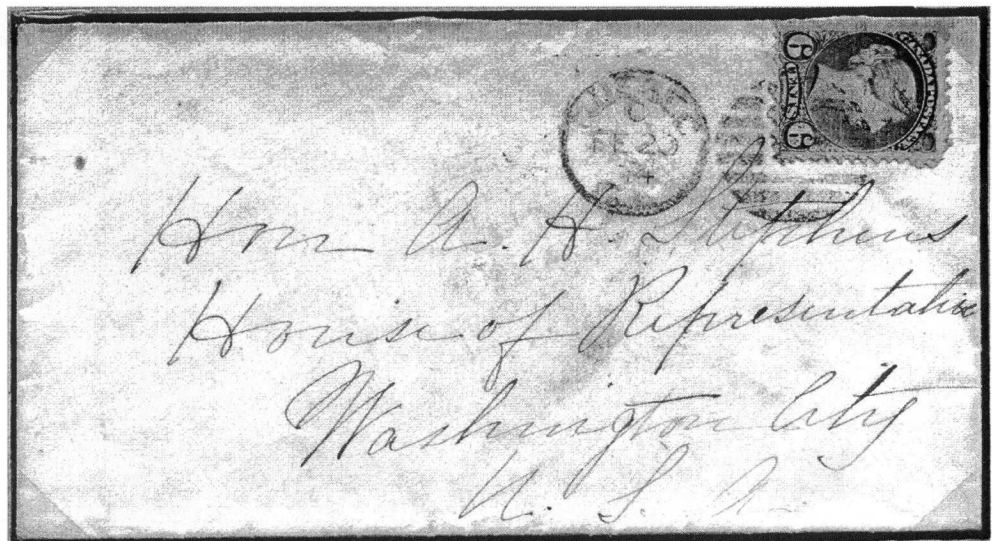 CANADA POSTAGE
6 CENTS 6
FE 23
Hon A. H. Stephens
House of Representative
Washington City
U. S. A.